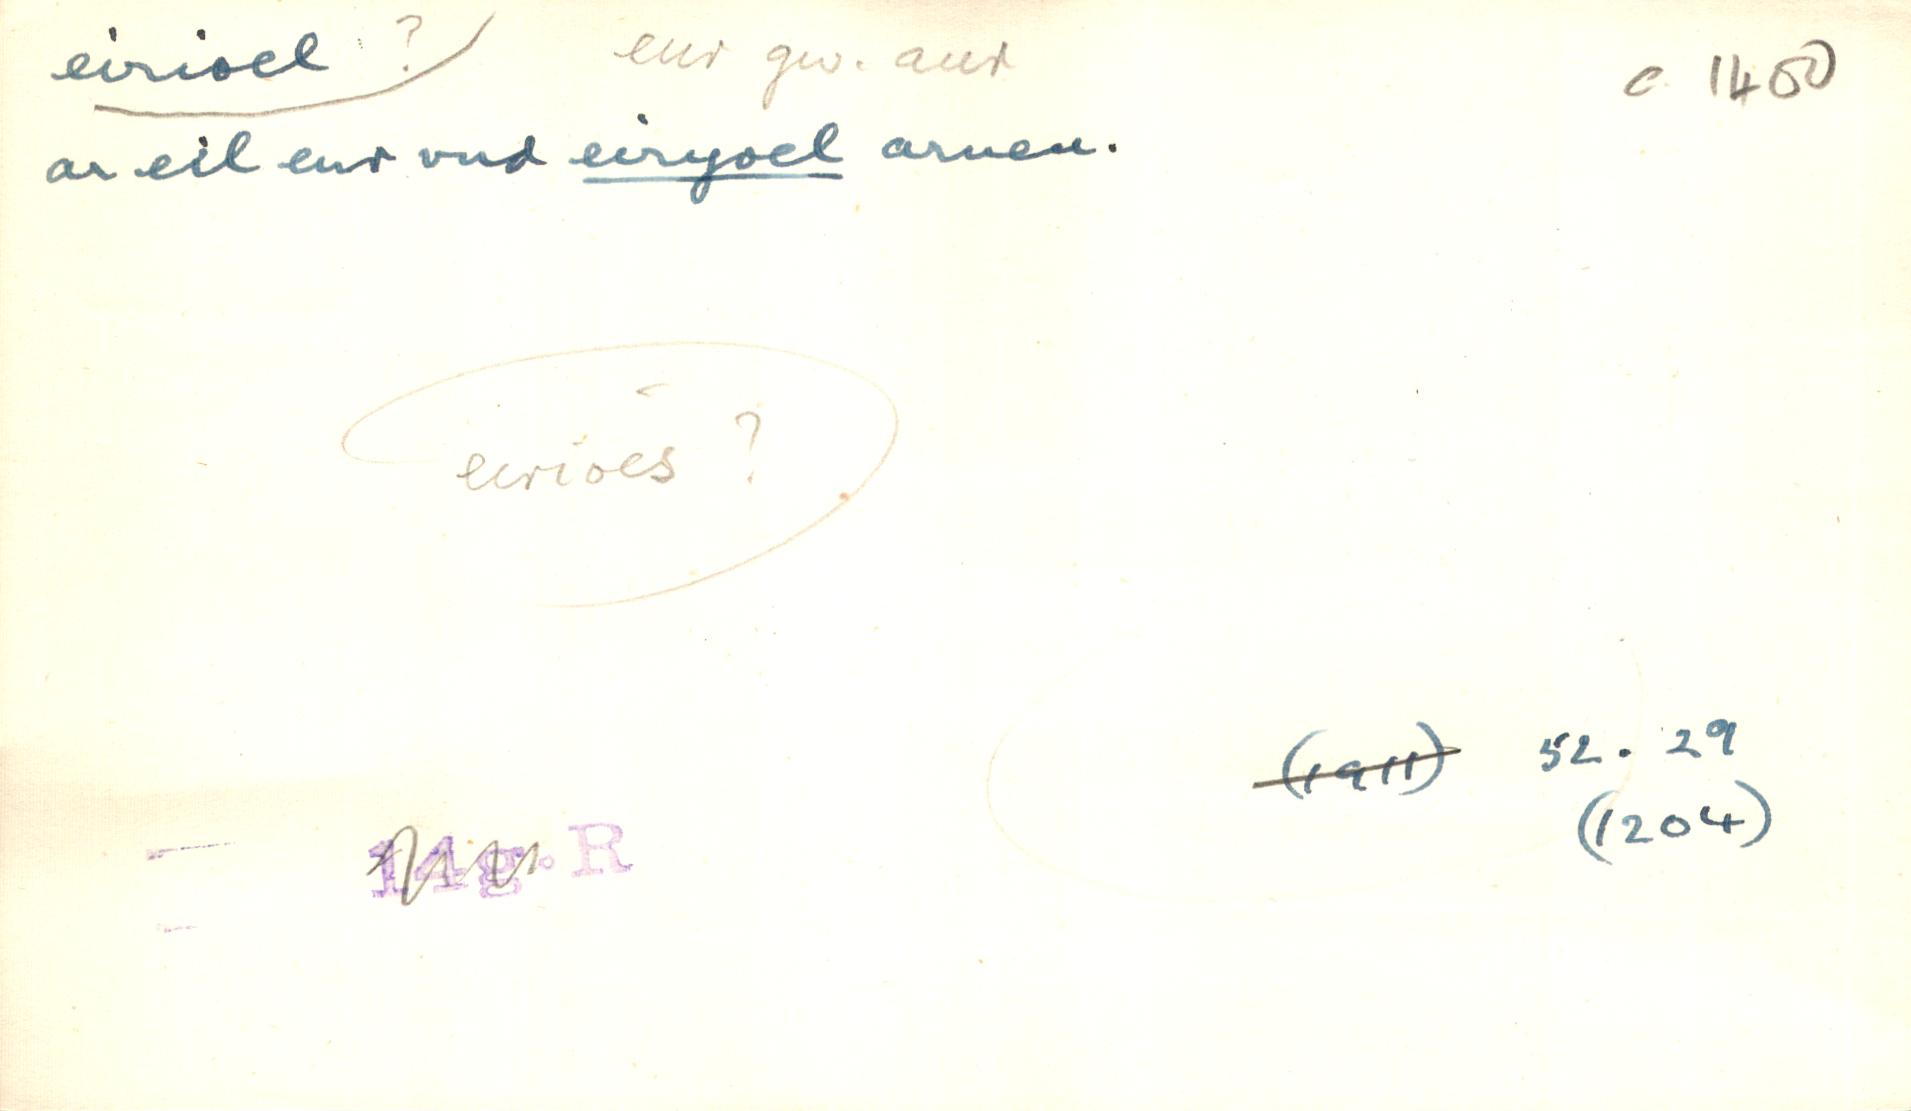 eirioel ? eur gw. aur c. 1400
ar eil eur vud eiryoel arnen.
eirioes ?
(1911) 52. 29
(1204)
14g. R